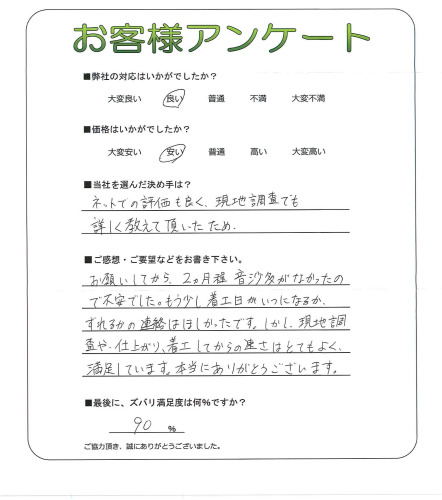 お客様アンケート
■弊社の対応はいかがでしたか?
大変良い 良い 普通 不満 大変不満
■価格はいかがでしたか?
大変安い 安い 普通 高い 大変高い
■当社を選んだ決め手は?
ネットでの評価も良く、現地調査でも
詳しく教えて頂いたため.
■ご感想・ご要望などをお書き下さい。
お願いしてから、2ヵ月程 音沙汰がなかったの
で不安でした。もう少し着工日がいつになるか、
ずれるかの連絡はほしかったです。しかし、現地調
査や、仕上がり、着工してからの速さはとてもよく、
満足しています。本当にありがとうございます。
■最後に、ズバリ満足度は何%ですか?
90 %
ご協力頂き、誠にありがとうございました。